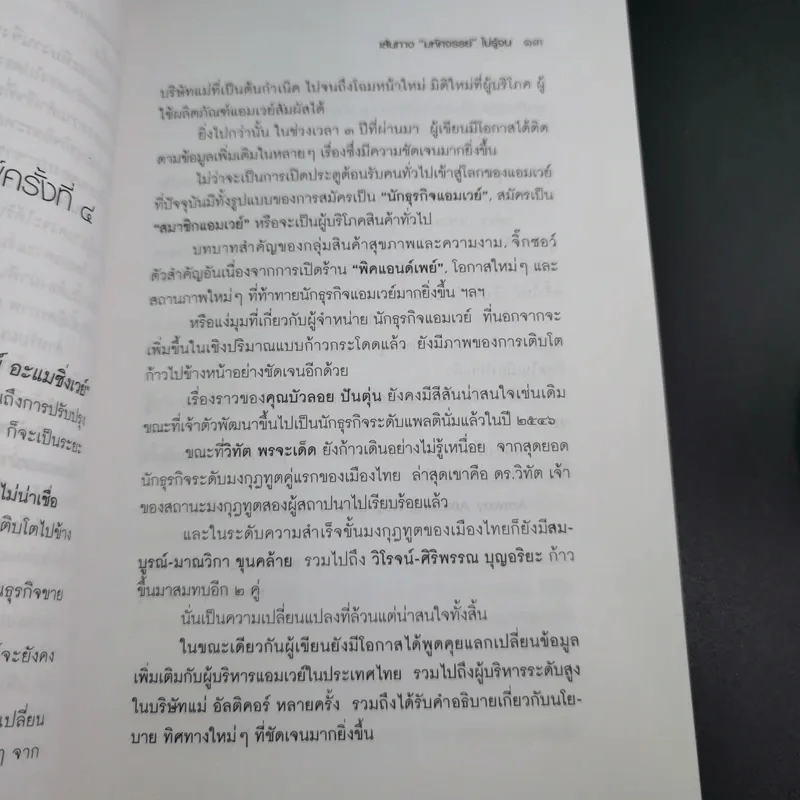 ครั้งที่ ๔
อะแมซิ่งเวย์"
ถึงการปรับปรุง
ก็จะเป็นระยะ
ไม่น่าเชื่อ
ติบโตไปข้าง
ธุรกิจขาย
จะยังคง
เปลี่ยน
ๆ จาก
เส้นทาง "มหัศจรรย์" ไม่รู้จบ ๑๓
บริษัทแม่ที่เป็นต้นกำเนิด ไปจนถึงโฉมหน้าใหม่ มิติใหม่ที่ผู้บริโภค ผู้
ใช้ผลิตภัณฑ์แอมเวย์สัมผัสได้
ยิ่งไปกว่านั้น ในช่วงเวลา ๓ ปีที่ผ่านมา ผู้เขียนมีโอกาสได้ติด
ตามข้อมูลเพิ่มเติมในหลายๆ เรื่องซึ่งมีความชัดเจนมากยิ่งขึ้น
ไม่ว่าจะเป็นการเปิดประตูต้อนรับคนทั่วไปเข้าสู่โลกของแอมเวย์
ที่ปัจจุบันมีทั้งรูปแบบของการสมัครเป็น "นักธุรกิจแอมเวย์", สมัครเป็น
"สมาชิกแอมเวย์" หรือจะเป็นผู้บริโภคสินค้าทั่วไป
บทบาทสำคัญของกลุ่มสินค้าสุขภาพและความงาม, จิ๊กซอว์
ตัวสำคัญอันเนื่องจากการเปิดร้าน "พิคแอนด์เพย์", โอกาสใหม่ๆ และ
สถานภาพใหม่ๆ ที่ท้าทายนักธุรกิจแอมเวย์มากยิ่งขึ้น ฯลฯ
หรือแง่มุมที่เกี่ยวกับผู้จำหน่าย นักธุรกิจแอมเวย์ ที่นอกจากจะ
เพิ่มขึ้นในเชิงปริมาณแบบก้าวกระโดดแล้ว ยังมีภาพของการเติบโต
ก้าวไปข้างหน้าอย่างชัดเจนอีกด้วย
เรื่องราวของคุณบัวลอย ปันตุ่น ยังคงมีสีสันน่าสนใจเช่นเดิม
ขณะที่เจ้าตัวพัฒนาขึ้นไปเป็นนักธุรกิจระดับแพลตินั่มแล้วในปี ๒๕๔๖
ขณะที่วิทัต พรจะเด็ด ยังก้าวเดินอย่างไม่รู้เหนื่อย จากสุดยอด
นักธุรกิจระดับมงกุฎทูตคู่แรกของเมืองไทย ล่าสุดเขาคือ ดร.วิทัต เจ้า
ของสถานะมงกุฎทูตสองผู้สถาปนาไปเรียบร้อยแล้ว
และในระดับความสำเร็จขั้นมงกุฎทูตของเมืองไทยก็ยังมีสม-
บูรณ์-มาณวิกา ขุนคล้าย รวมไปถึง วิโรจน์-ศิริพรรณ บุญอริยะ ก้าว
ขึ้นมาสมทบอีก ๒ คู่
นั่นเป็นความเปลี่ยนแปลงที่ล้วนแต่น่าสนใจทั้งสิ้น
ในขณะเดียวกันผู้เขียนยังมีโอกาสได้พูดคุยแลกเปลี่ยนข้อมูล
เพิ่มเติมกับผู้บริหารแอมเวย์ในประเทศไทย รวมไปถึงผู้บริหารระดับสูง
ในบริษัทแม่ อัลติคอร์ หลายครั้ง รวมถึงได้รับคำอธิบายเกี่ยวกับนโย-
บาย ทิศทางใหม่ๆ ที่ชัดเจนมากยิ่งขึ้น